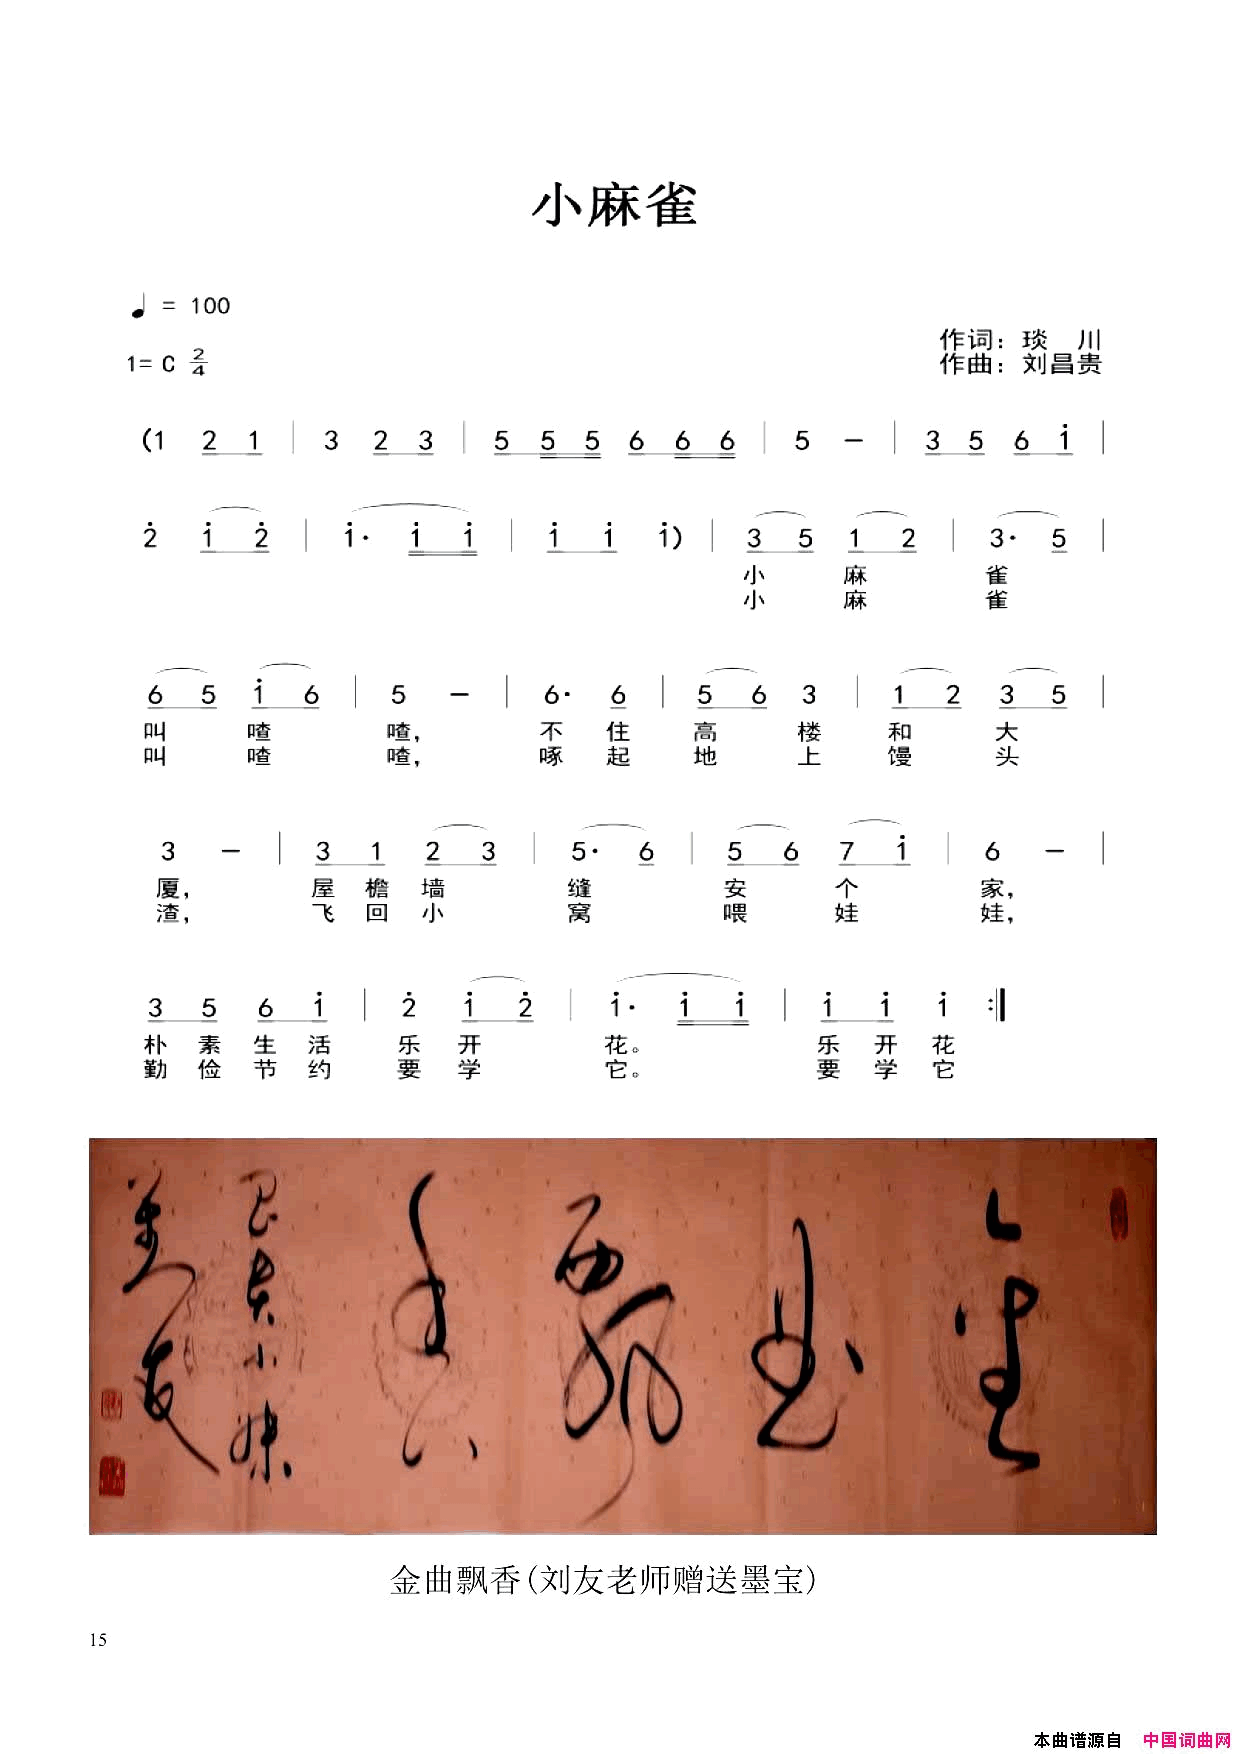 小麻雀
♩= 100
作词：琰 川
1= C 2/4
作曲：刘昌贵
(1 2 1 | 3 2 3 | 5 5 5 6 6 6 | 5 — | 3 5 6 i |
2 i 2 | i· i i | i i i) | 3 5 1 2 | 3· 5 |
小 麻 雀
小 麻 雀
6 5 i 6 | 5 — | 6· 6 | 5 6 3 | 1 2 3 5 |
叫 喳 喳， 不 住 高 楼 和 大
叫 喳 喳， 啄 起 地 上 馒 头
3 — | 3 1 2 3 | 5· 6 | 5 6 7 i | 6 — |
厦， 屋 檐 墙 缝 安 个 家，
渣， 飞 回 小 窝 喂 娃 娃，
3 5 6 i | 2 i 2 | i· i i | i i i :|
朴 素 生 活 乐 开 花。 乐 开 花
勤 俭 节 约 要 学 它。 要 学 它
金曲飘香
金曲飘香(刘友老师赠送墨宝)
15
本曲谱源自 中国词曲网